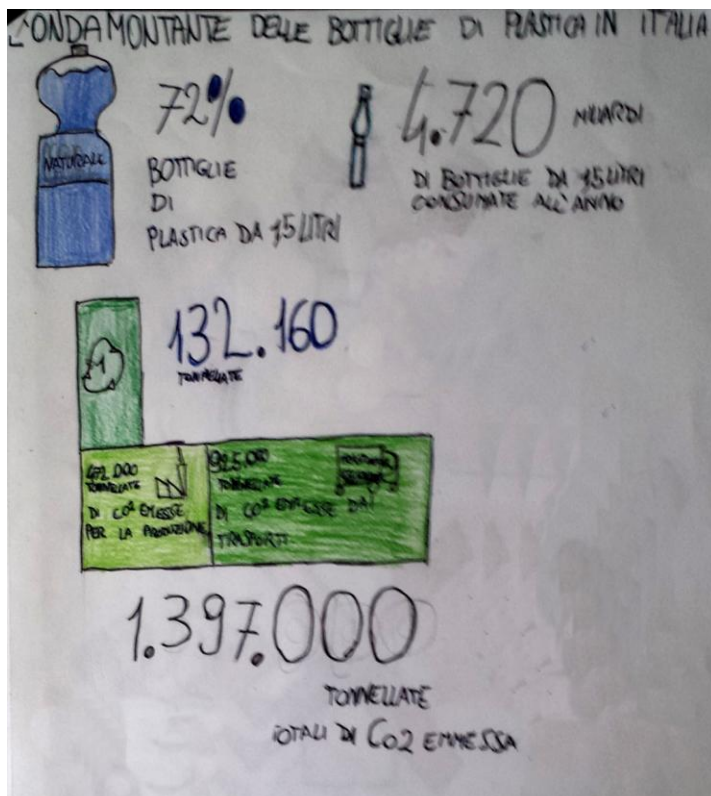 L'ONDA MONTANTE DELLE BOTTIGLIE DI PLASTICA IN ITALIA
NATURALE
72%
BOTTIGLIE
DI
PLASTICA DA 1,5 LITRI
4.720 MILIARDI
DI BOTTIGLIE DA 1,5 LITRI
CONSUMATE ALL'ANNO
1
132.160
TONNELLATE
472.000
TONNELLATE
DI CO2 EMESSE
PER LA PRODUZIONE
925.000
TONNELLATE
DI CO2 EMESSE DAI
TRASPORTI
1.397.000
TONNELLATE
TOTALI DI CO2 EMMESSA